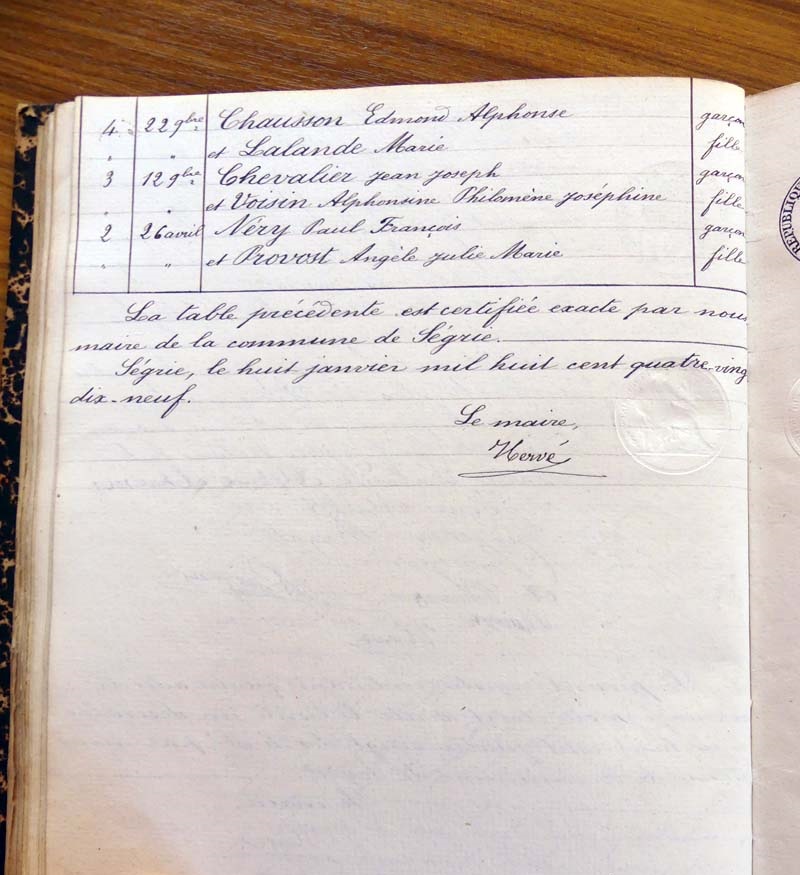 4 22 9bre Chausson Edmond Alphonse garçon
„ „ et Lalande Marie fille
3 12 9bre Chevalier Jean Joseph garçon
„ „ et Voisin Alphonsine Philomène Joséphine fille
2 26 avril Néry Paul François garçon
„ „ et Provost Angèle Julie Marie fille
La table précédente est certifiée exacte par nous
maire de la commune de Ségrie.
Ségrie, le huit janvier mil huit cent quatre-ving
dix-neuf.
Le maire,
Hervé
RÉPUBLIQUE